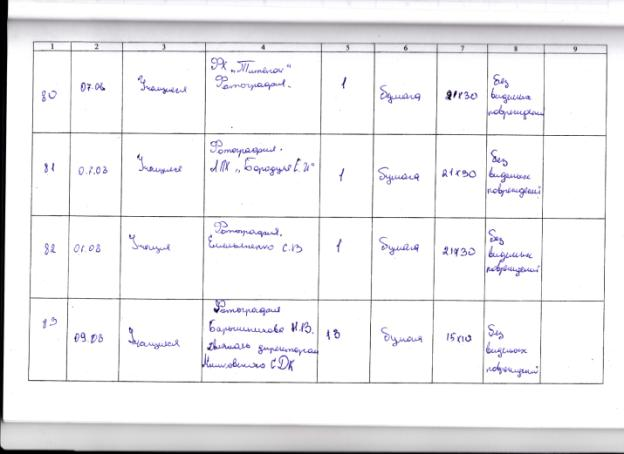 1 2 3 4 5 6 7 8 9
80 07.08 Учащиеся ФХ „Титенок" Фотография. 1 Бумага 21х30 без видимых повреждений
81 07.08 Учащиеся Фотография. ЛПХ „Бородуля С.И" 1 Бумага 21х30 без видимых повреждений
82 01.08 Учащиеся Фотография. Емельяненко С.В 1 Бумага 21х30 без видимых повреждений
83 09.08 Учащиеся Фотография Барышникова Н.В. директором СДК 13 Бумага 15х10 без видимых повреждений